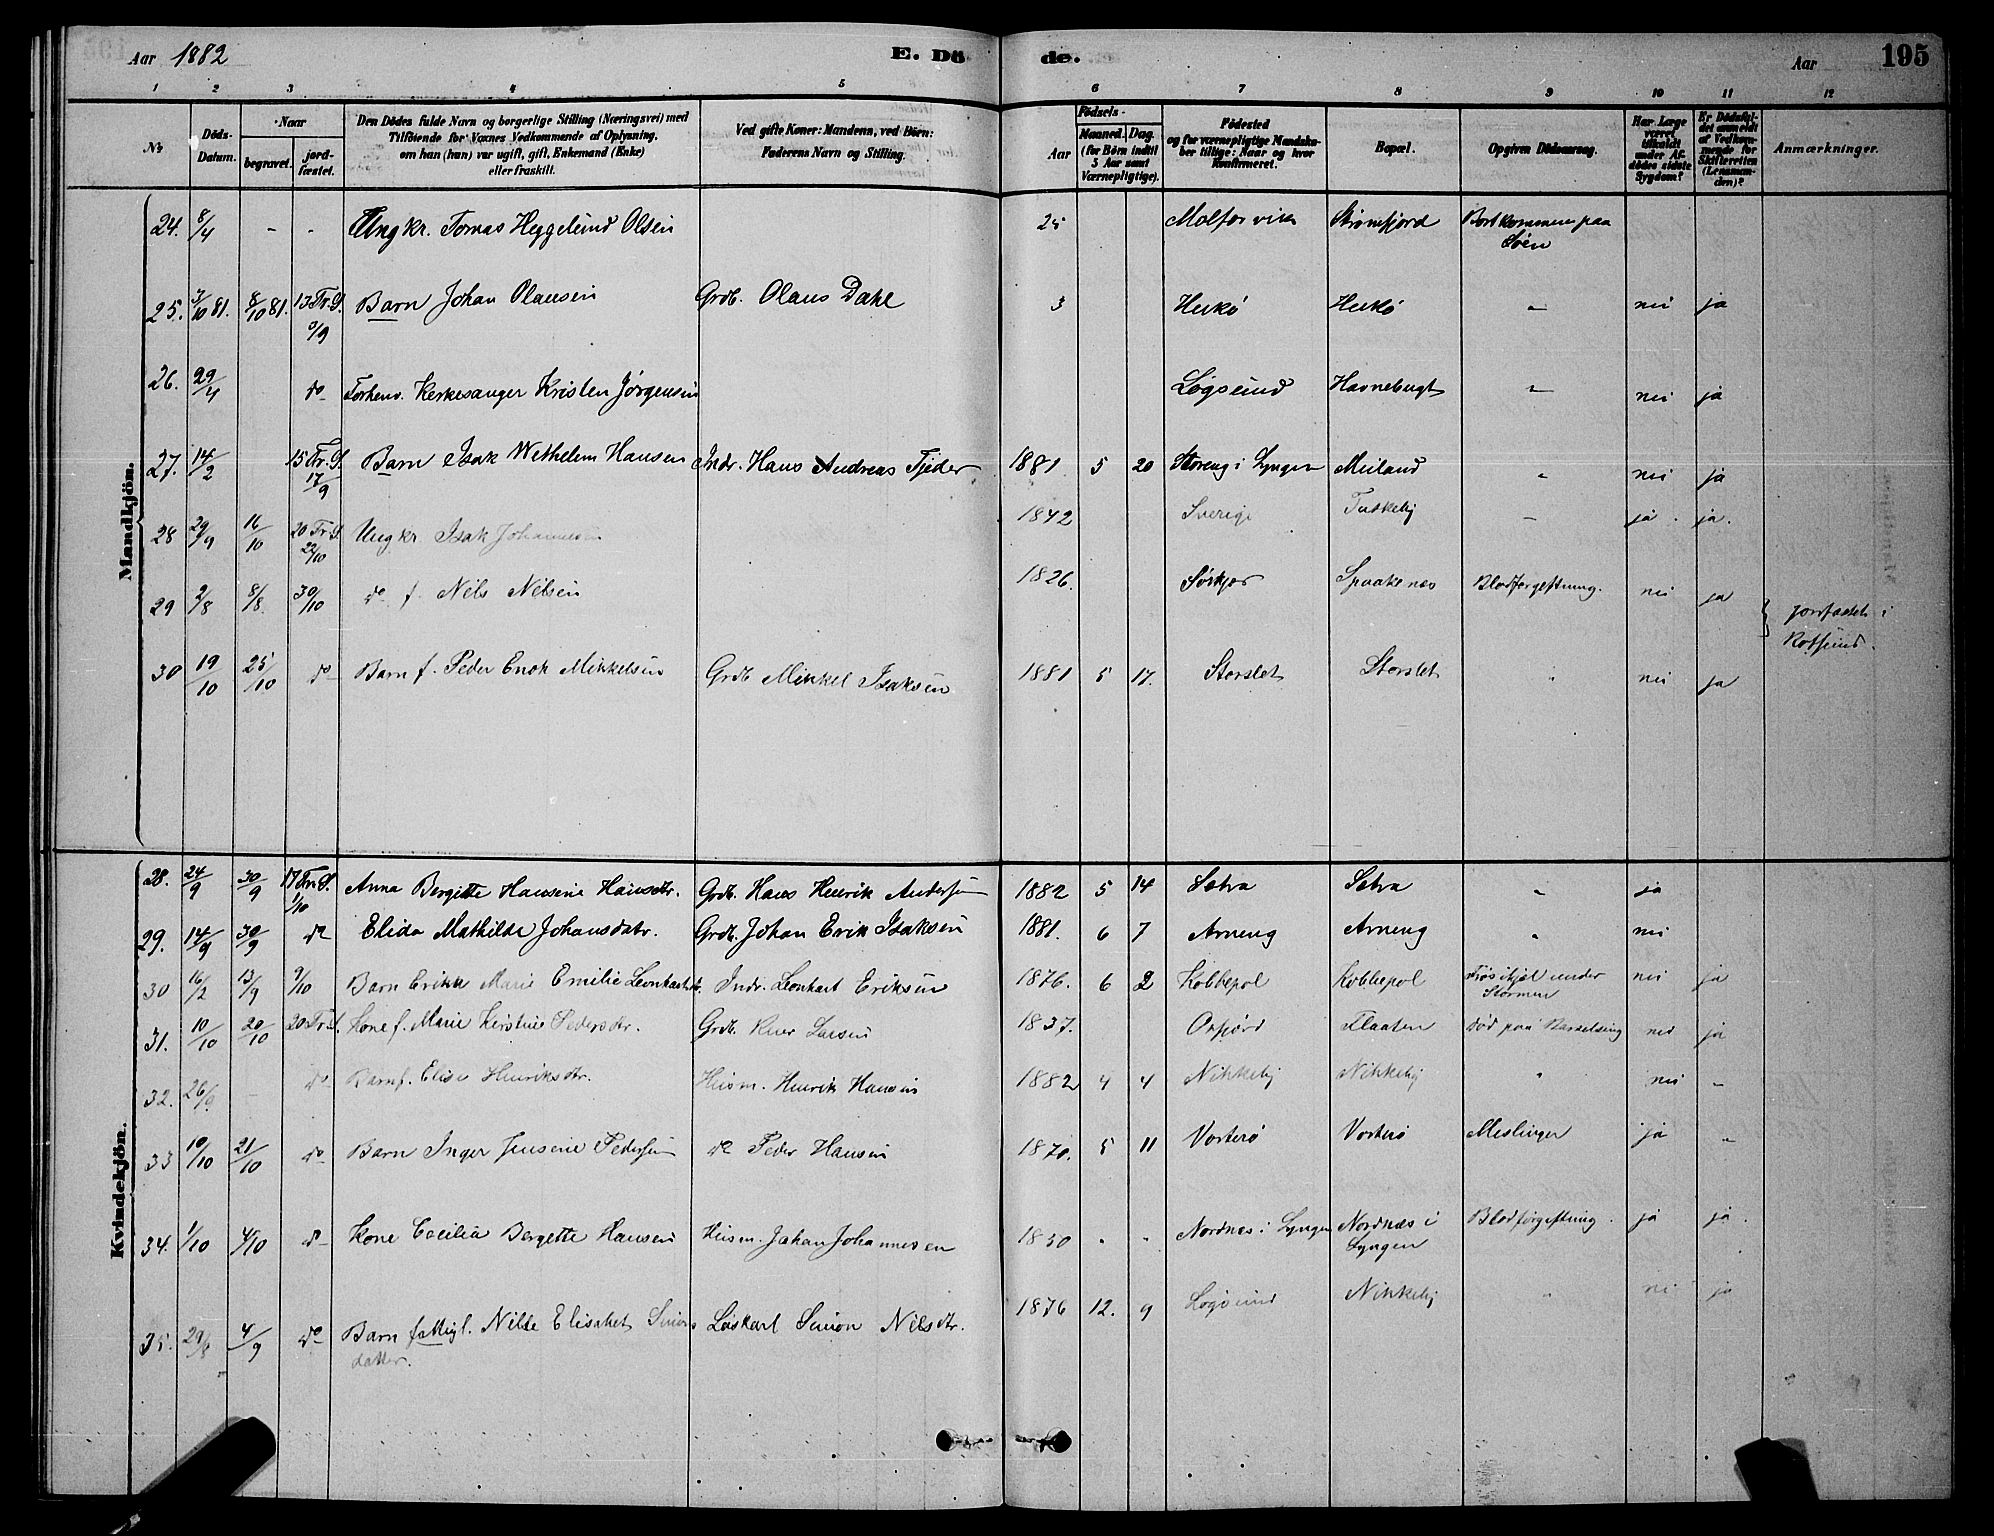 Aar 1882 E. Dö de. Aar 195
1 2 3 4 5 6 7 8 9 10 11 12
№ Döds-Datum. Naar begravet. jord-fæstet. Den Dödes fulde Navn og borgerlige Stilling (Næringsvei) med Tilföiende for Voxnes Vedkommende af Oplysning, om han (hun) var ugift, gift, Enkemand (Enke) eller fraskilt. Ved gifte Koner: Mandens, ved Börn: Faderens Navn og Stilling. Födsels- Aar Maaned. Dag. (for Börn indtil 5 Aar samt Værnepligtige). Födested og for værnepligtige Mandskaber tillige: Naar og hvor Konfirmeret. Bopæl. Opgiven Dödsaarsag. Har Læge været tilkaldt under Afdödes sidste Sygdom? Er Dödsfaldet anmeldt af Vedkommende for Skifteretten (Lensmanden)? Anmærkninger.
Mandkjön.
24. 8/4 - - Ungkr. Tomas Heggelund Olsen 25 Molforvik Strømfjord Bortkommen paa Søen
25. 3/10 81. 8/10 81. 13 Tr. S. 3/9 Barn Johan Olausen Grdb. Olaus Dahl 3 Heikø Heikø " nei ja
26. 29/4 do Forhenv. Kerkesanger Kristen Jørgensen Løgsund Havnebugt " nei ja
27. 14/2 15 Tr. S. 17/9 Barn Isak Wethelm Hansen Indr. Hans Andreas Tjeder 1881 5 20 Storeng i Lyngen Meiland " nei ja
28 29/9 16/10 20 Tr. S. 22/10 Ungkr Isak Johannesen 1842 Sverige Taskeby " ja. ja.
29 2/8 8/8. 30/10 do f. Nels Nelsen 1826. Sørkjos Spaakenæs Blodforgeftning. nei ja } jordfæstet i Rotsund.
30 19/10 25/10 do Barn f. Peder Enok Mikkelsen Grdb Mikkel Isaksen 1881 5 17. Storslet Storslet " nei ja
Kvindekjön.
28. 24/9 30/9 17 Tr. S. 1/10 Anna Bergitte Hansine Hansdtr. Grdb. Hans Henrik Andersen 1882 5 14 Sætra Sætra " ja
29. 14/9 30/9 do Elida Mathilde Johansdatr. Grdb. Johan Erik Isaksen 1881. 6 7 Arneng Arneng " nei
30 16/2 13/9 9/10 Barn Erikk Marie Emilie Leonhartsdtr. Indr. Leonhart Eriksen 1876. 6 2 Kobbepol Kobbepol Frøs ihjel under Stormen nei ja
31. 10/10 20/10 20 Tr. S. Kone f. Marie Kerstine Pedersdtr. Grdb. Peer Larsen 1837. Oxfjord Flaaten død paa Barselseng nei ja
32. 26/9. - do Barn f. Elise Henriksdtr. Husm. Henrik Hansen 1882 4 4 Nikkeby Nikkeby " nei "
33 10/10 21/10 do Barn Inger Jensine Pedersen do Peder Hansen 1870. 5 11 Vorterø Vorterø Meslinger ja "
34. 1/10 4/10 do Kone Cecilia Bergette Hansen Husm. Johan Johannesen 1830 " " Nordnæs i Lyngen Nordnæs i Lyngen Blodførgeftning. ja ja.
35. 29/8 4/9 do Barn fattigl. Nille Elisabet Simons datter. Løskarl Simon Nilsdtr. 1876 12. 9 Løgsund Nikkeby " nei ja